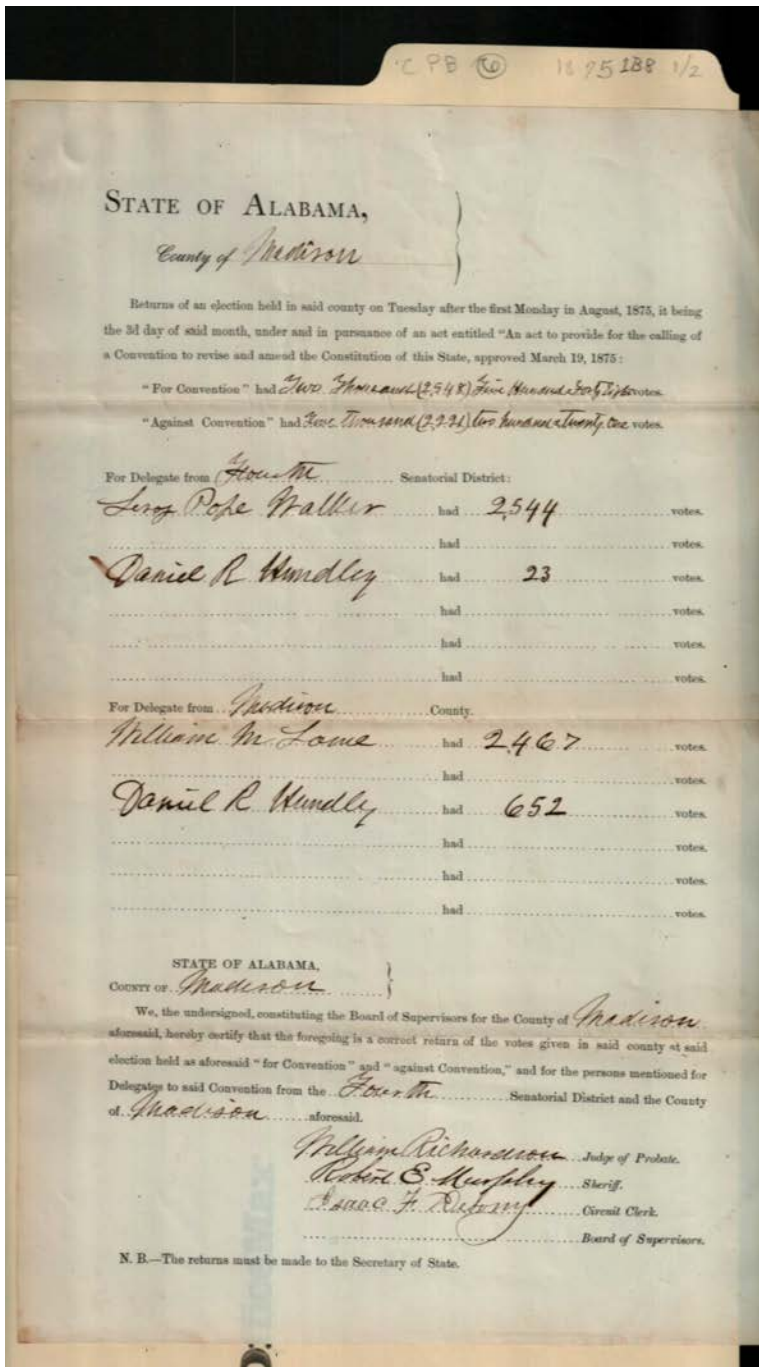 C P B 6 1875 188 1/2
STATE OF ALABAMA,
County of Madison
Returns of an election held in said county on Tuesday after the first Monday in August, 1875, it being
the 3d day of said month, under and in pursuance of an act entitled "An act to provide for the calling of
a Convention to revise and amend the Constitution of this State, approved March 19, 1875:
"For Convention" had Two Thousand (2,548) Five Hundred & Forty Eight votes.
"Against Convention" had Two thousand (2,221) two hundred & twenty one votes.
For Delegate from Fourth Senatorial District:
Leroy Pope Walker had 2,544 votes.
had votes.
Daniel R Hundley had 23 votes.
had votes.
had votes.
had votes.
For Delegate from Madison County.
William M Lowe had 2,467 votes.
had votes.
Daniel R Hundley had 652 votes.
had votes.
had votes.
had votes.
STATE OF ALABAMA,
COUNTY OF Madison
We, the undersigned, constituting the Board of Supervisors for the County of Madison
aforesaid, hereby certify that the foregoing is a correct return of the votes given in said county at said
election held as aforesaid "for Convention" and "against Convention," and for the persons mentioned for
Delegates to said Convention from the Fourth Senatorial District and the County
of Madison aforesaid.
William Richardson Judge of Probate.
Robert E. Murphy Sheriff.
Isaac F. Circuit Clerk.
Board of Supervisors.
N. B.—The returns must be made to the Secretary of State.